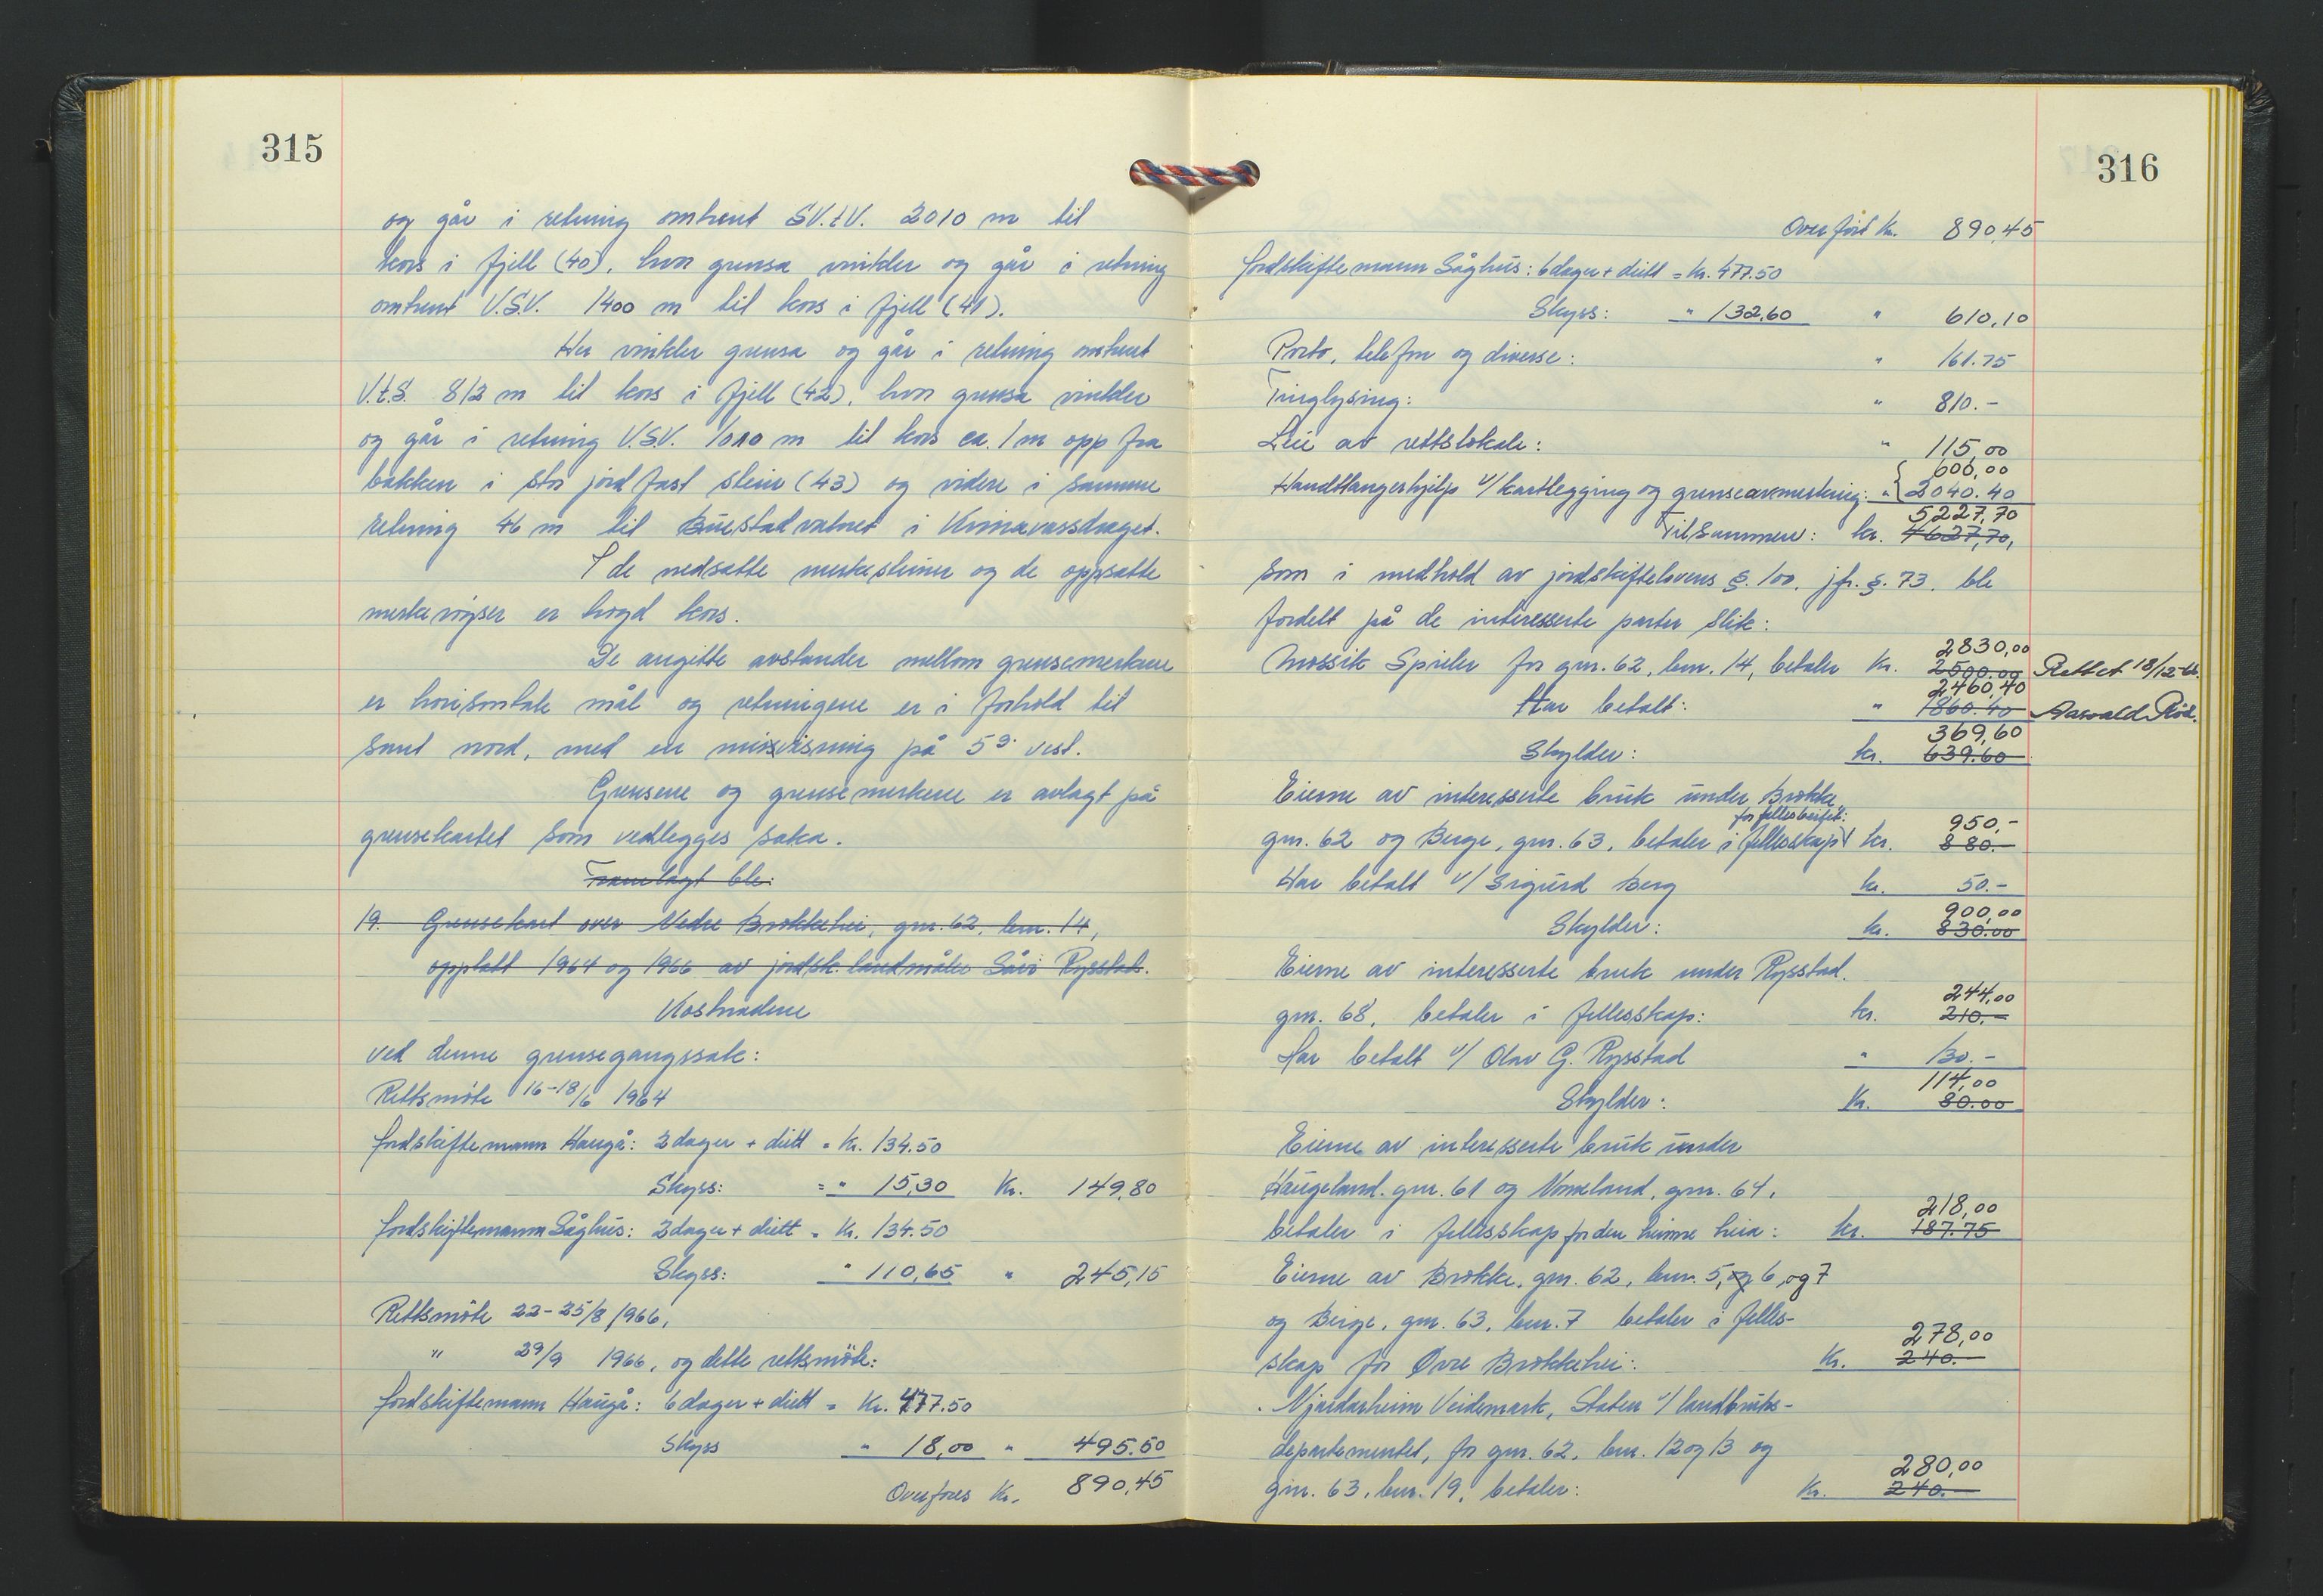 315
og går i retning omtrent SV.t.V. 2010 m til
kors i fjell (40), hvor grensa vinkler og går i retning
omtrent V.S.V. 1400 m til kors i fjell (41).
Her vinkler grensa og går i retning omtrent
V.t.S. 812 m til kors i fjell (42), hvor grensa vinkler
og går i retning V.S.V. 1010 m til kors ca. 1 m opp fra
bakken i stor jordfast stein (43) og videre i samme
retning 46 m til Buestadvatnet i Kvinavassdraget.
I de nedsatte merkesteiner og de oppsatte
merkevøyser er hogd kors.
De angitte avstander mellom grensemerkene
er horisontale mål og retningene er i forhold til
sant nord, med en misvisning på 5g. vest.
Grensene og grensemerkene er avlagt på
grensekartet som vedlegges saka.
Framlagt ble:
19. Grensekart over Nedre Brokkehei, gnr. 62, bnr. 14,
opptatt 1964 og 1966 av jordsk.landmåler Såvi Rysstad.
Kostnadene
ved denne grensegangssak:
Rettsmöte 16-18/6 1964
Jordskiftemann Haugå: 2 dager + diett = Kr. 134.50
Skyss: = " 15,30 Kr. 149,80
Jordskiftemann Såghus: 2 dager + diett = Kr. 134.50
Skyss: " 110,65 " 245,15
Rettsmöte 22-25/8 1966,
" 29/9 1966, og dette rettsmöte:
Jordskiftemann Haugå: 6 dager + diett = Kr. 477.50
Skyss " 18,00 " 495.50
Overføres Kr. 890,45
316
Overført Kr. 890,45
Jordskiftemann Såghus: 6 dager + diett = Kr. 477.50
Skyss: " 132,60 " 610,10
Porto, telefon og diverse: " 161.75
Tinglysing: " 810.-
Leie av rettslokale: " 115,00
600,00
Handtlangerhjelp v/ kartlegging og grenseavmerking: " 2040.40
5227,70
Tilsammen: kr. 4627,70,
som i medhold av jordskiftelovens §. 100, jfr. §. 73, ble
fordelt på de interesserte parter slik:
2830,00
Mossik Spieler for gnr. 62, bnr. 14, betaler Kr. 2500.00 Rettet 18/12-66.
2460,40
Har betalt: " 1860.40 Aasvald Röd.
369,60
Skylder: kr. 639.60
Eierne av interesserte bruk under Brokke,
for fellesbeitet: 950,-
gnr. 62 og Berge, gnr. 63, betaler i fellesskap kr. 880.-
Har betalt v/ Sigurd Berg kr. 50.-
900,00
Skylder: kr. 830.00
Eierne av interesserte bruk under Rysstad,
244,00
gnr. 68, betaler i fellesskap: kr. 210.-
Har betalt v/ Olav G. Rysstad " 130.-
114,00
Skylder: Kr. 80.00
Eierne av interesserte bruk under
Haugeland, gnr. 61 og Nomeland, gnr. 64,
218,00
betaler i fellesskap for den heime heia: kr. 187.75
Eierne av Brokke, gnr. 62, bnr. 5, og 6, og 7
og Berge, gnr. 63, bnr. 7 betaler i felles-
278,00
skap for Øvre Brokkehei: Kr. 240.-
Njardarheim Veidemark, Staten v/ landbruks-
departementet, for gnr. 62, bnr. 12 og 13 og
280,00
gnr. 63, bnr. 19, betaler: Kr. 240.-